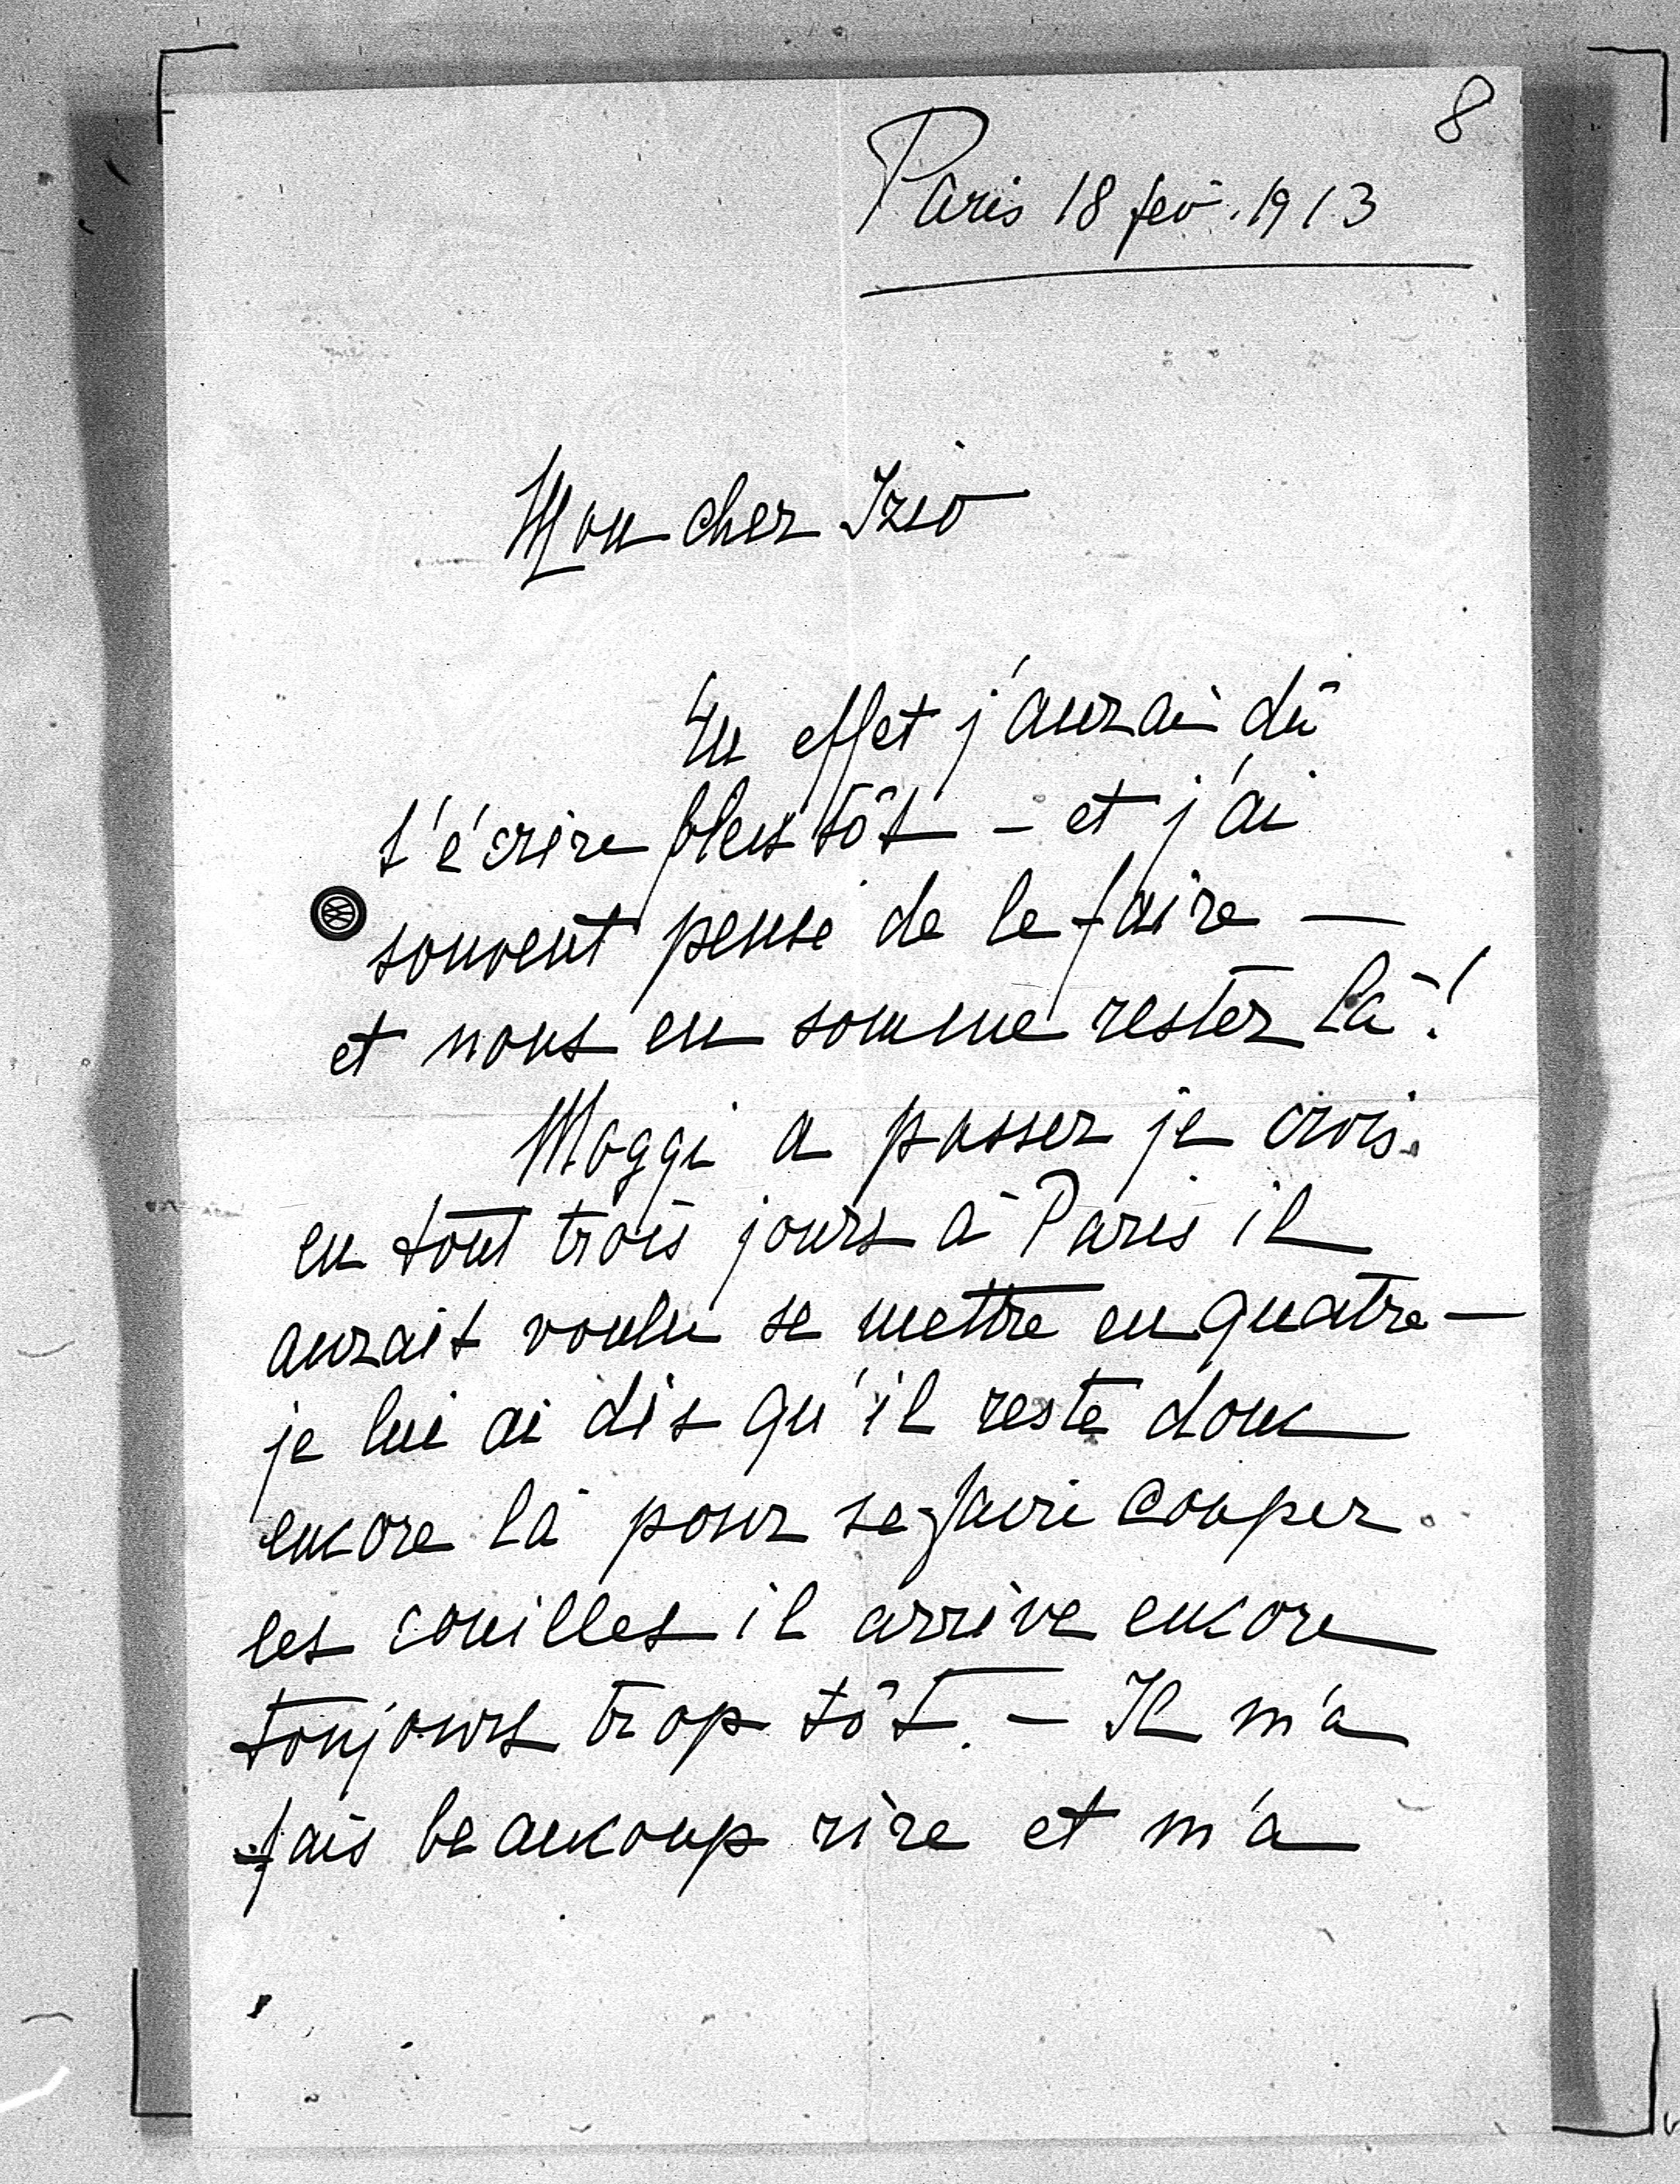 8
Paris 18 fev. 1913
Mon cher Izio
En effet j'aurai dû
t'écrire plus tôt – et j'ai
souvent pensé de le faire —
et nous en somme rester là!
Moggi a passer je crois
en tout trois jours à Paris il
aurait voulu se mettre en quatre —
je lui ai dis qu'il reste donc
encore là pour se faire couper
les couilles il arrive encore
toujours trop tôt. – Il m'a
fais beaucoup rire et m'a